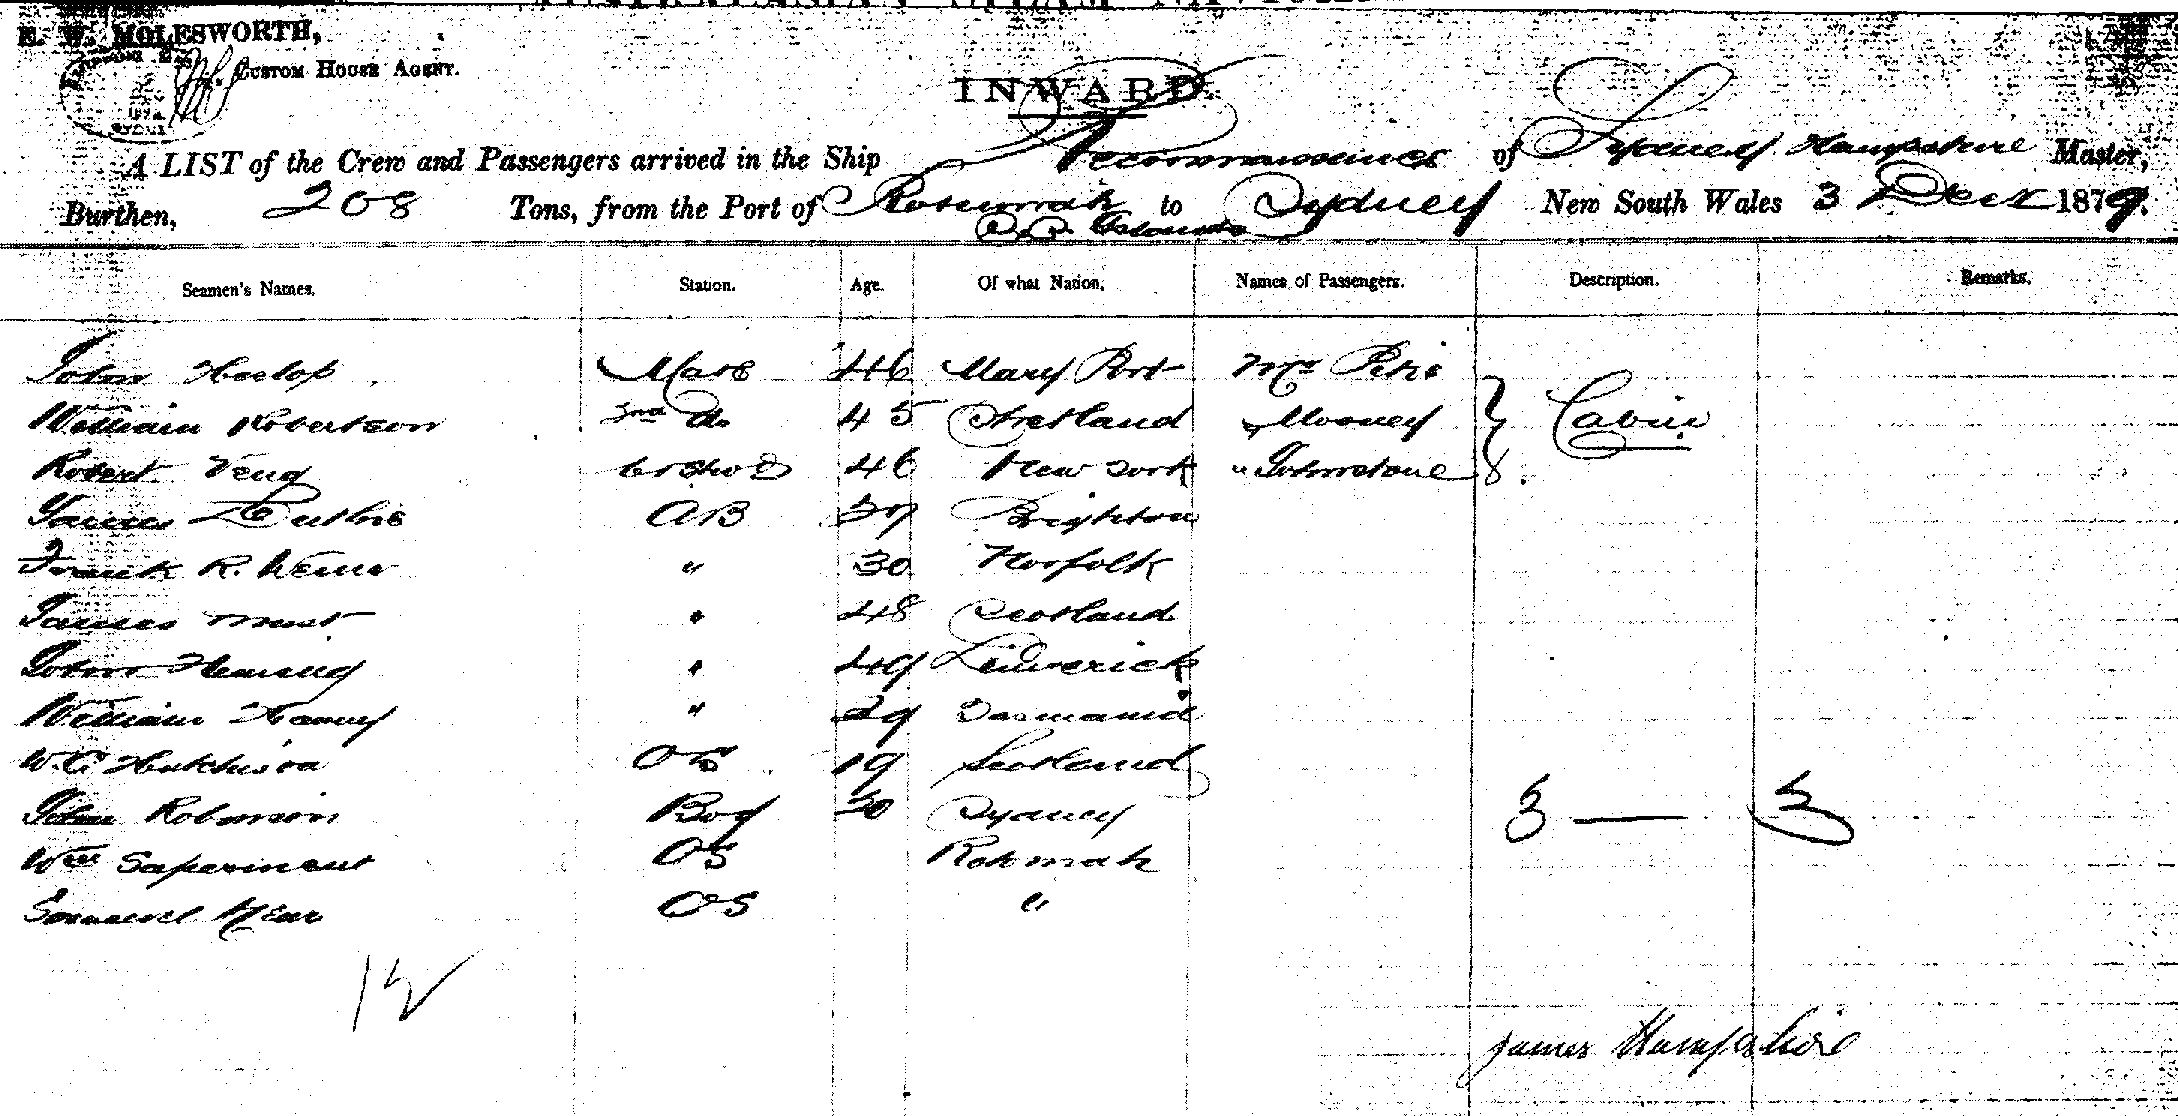 E. W. MOLESWORTH,
CUSTOM HOUSE AGENT.
INWARD.
A LIST of the Crew and Passengers arrived in the Ship Reconnaissance of Sydney Hampshire Master,
Burthen, 208 Tons, from the Port of to Sydney New South Wales 3 Decr 1879.
S.S. Islands
Seamen's Names. Station. Age. Of what Nation. Names of Passengers. Description. Remarks.
John Heslop Mate 46 Mary Port Mrs Petrie
William Robertson 2nd do 45 Shetland " Mooney Cabin
Robert 46 New York " Johnstone
James Duthie AB 37 Brighton
Frank R. " 30 Norfolk
James " 48 Scotland
John " 49 Limerick
William Harvey " 29 Tasmania
W. C. Hutchison OS 19 Scotland
John Robinson Boy 20 Sydney 3 — 3
Wm OS Rotumah
Samuel OS "
12
James Hampshire